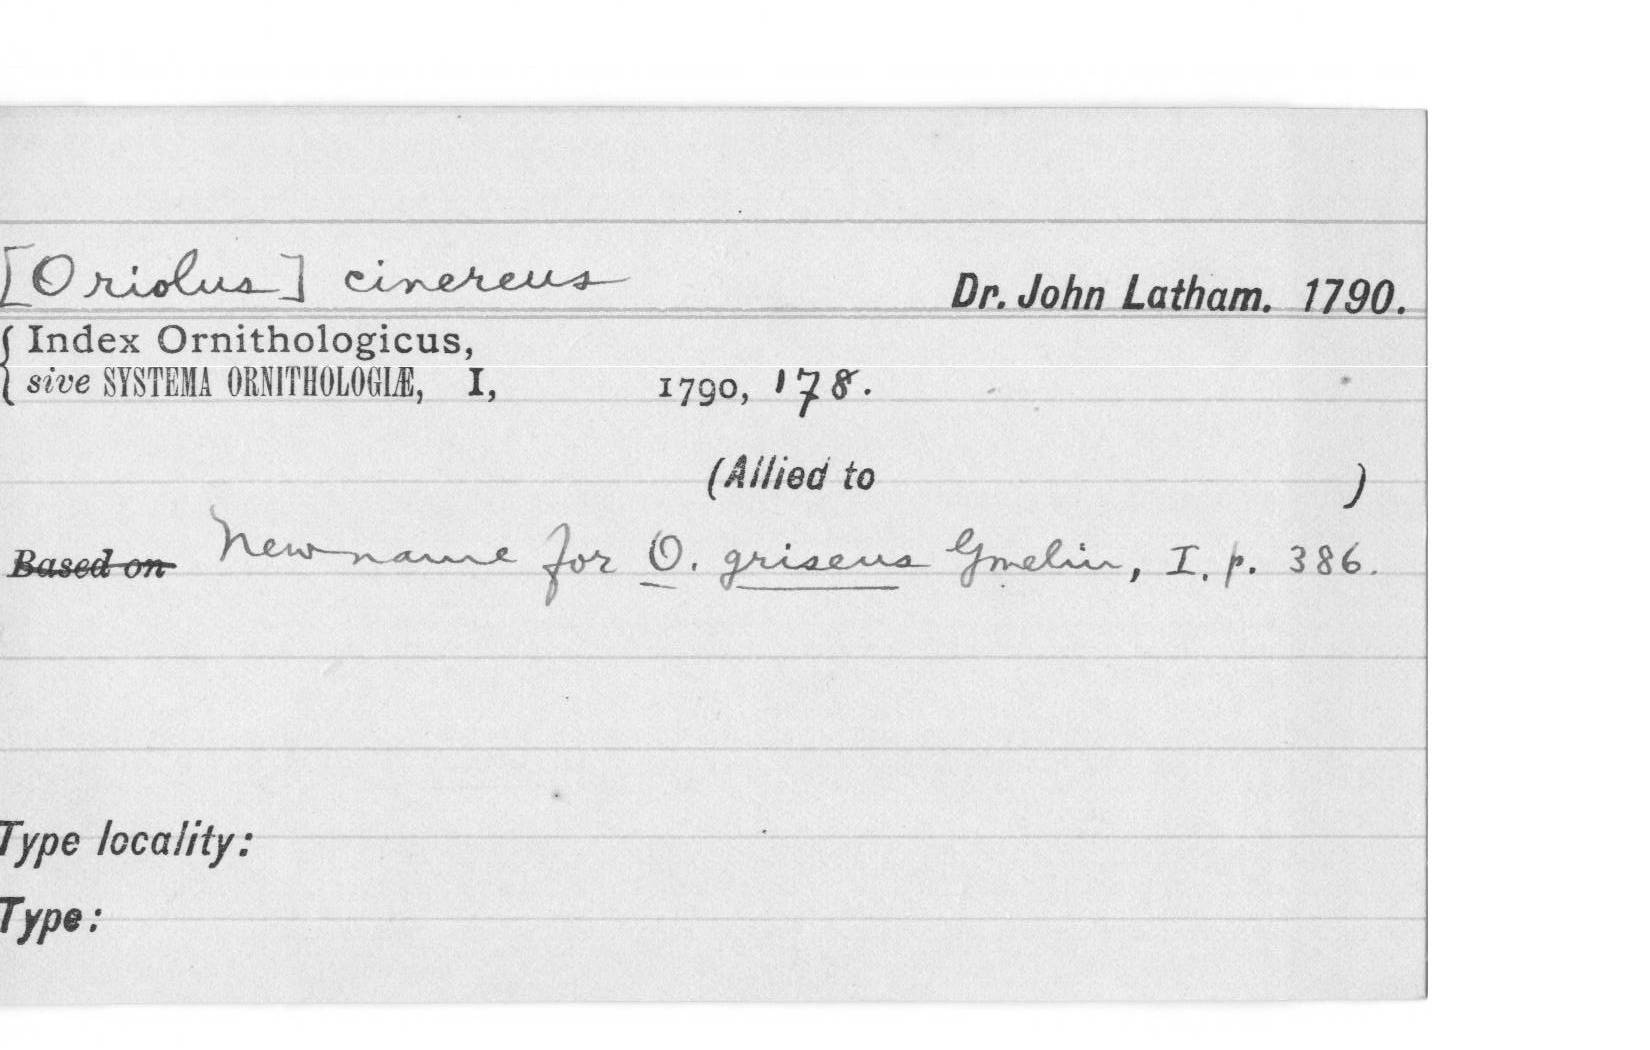 [Oriolus] cinereus Dr. John Latham. 1790.
{ Index Ornithologicus,
sive SYSTEMA ORNITHOLOGIÆ, I, 1790, 178.
(Allied to )
Based on New name for O. griseus Gmelin, I. p. 386.
Type locality:
Type: